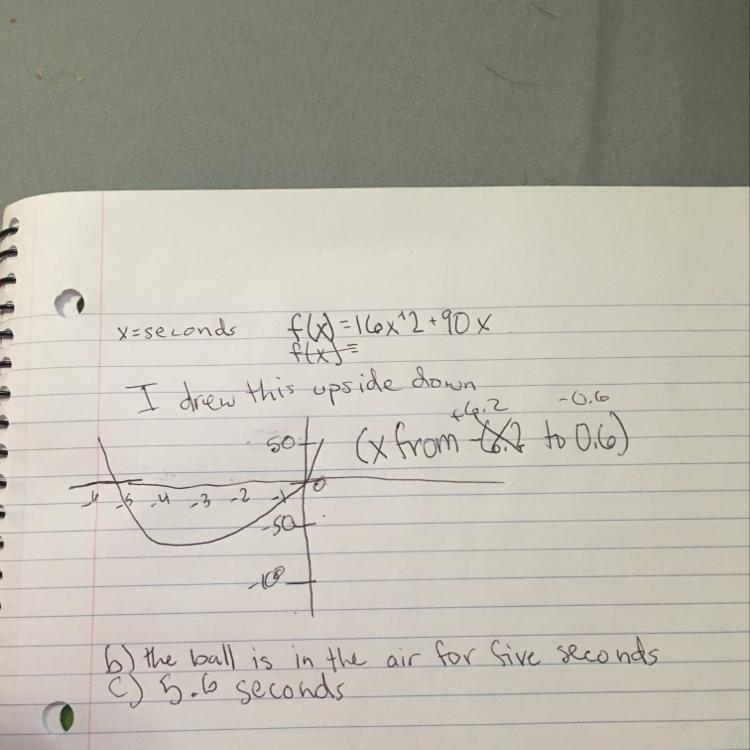 x=seconds f(x)=16x^2+90x
f(x)=
I drew this upside down
+6.2 -0.6
50 (x from -6.2 to 0.6)
-6 -5 -4 -3 -2 -1 0
-50
-100
b) the ball is in the air for five seconds
c) 5.6 seconds